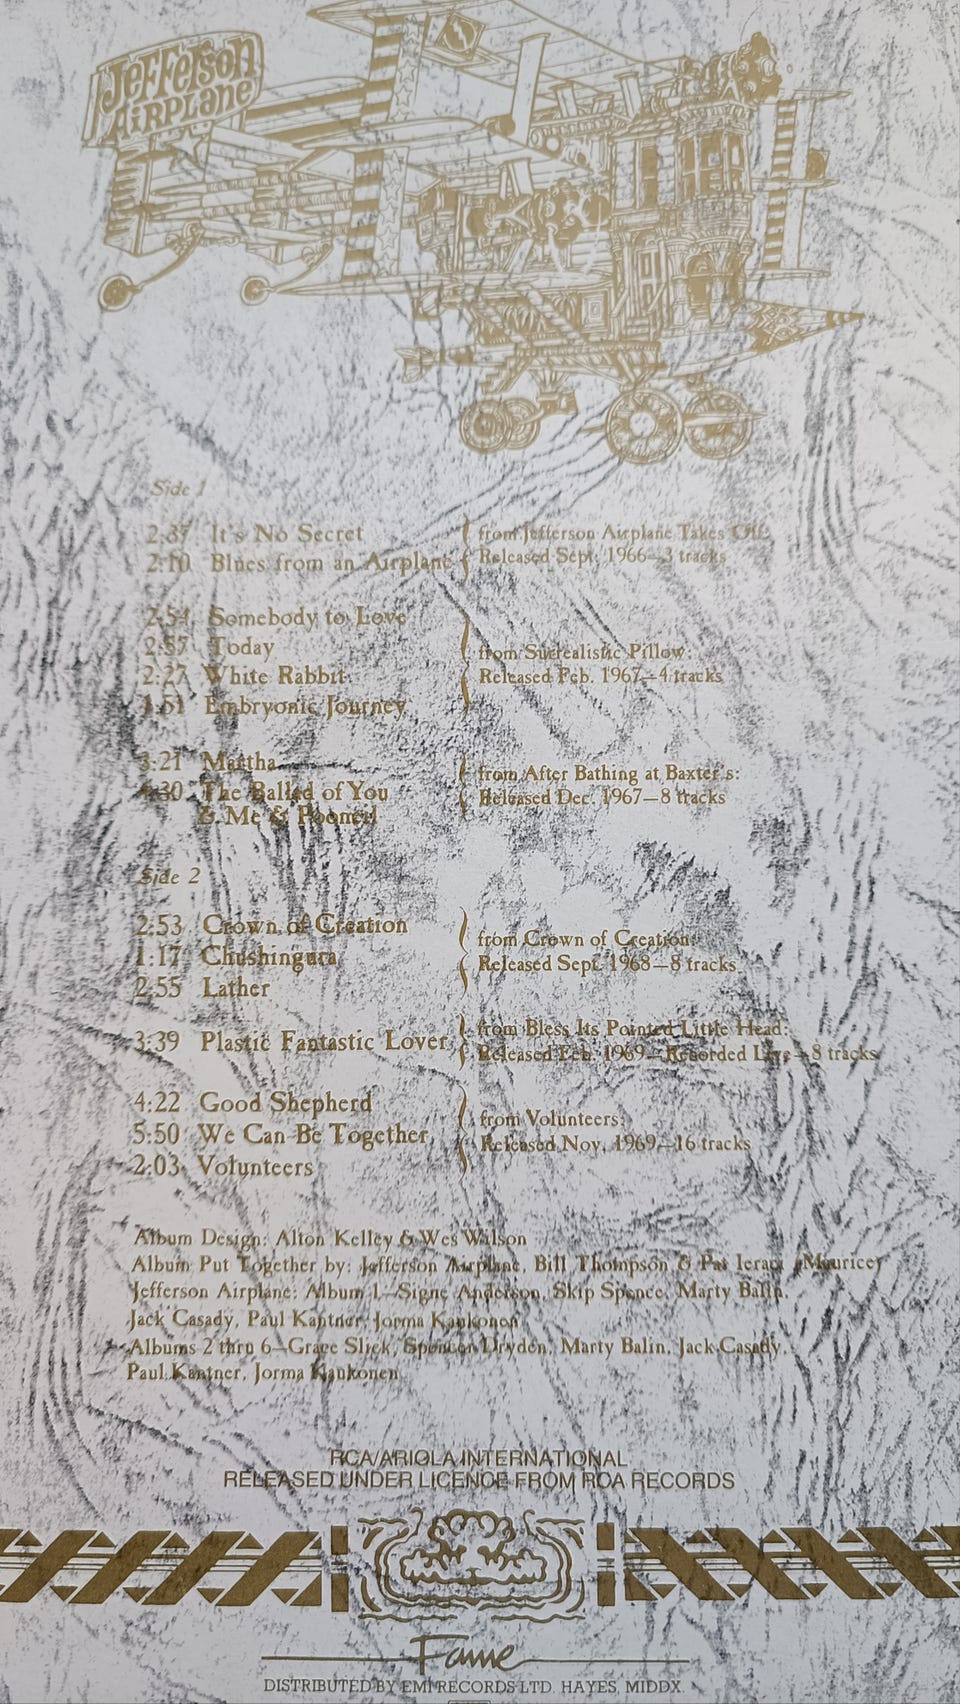 Jefferson
Airplane
Side 1
2:37 It's No Secret
2:10 Blues from an Airplane
from Jefferson Airplane Takes Off:
Released Sept. 1966—3 tracks
2:54 Somebody to Love
2:57 Today
2:27 White Rabbit
1:51 Embryonic Journey
from Surrealistic Pillow:
Released Feb. 1967—4 tracks
3:21 Martha
4:30 The Ballad of You
& Me & Pooneil
from After Bathing at Baxter's:
Released Dec. 1967—8 tracks
Side 2
2:53 Crown of Creation
1:17 Chushingura
2:55 Lather
from Crown of Creation:
Released Sept. 1968—8 tracks
3:39 Plastic Fantastic Lover
from Bless Its Pointed Little Head:
Released Feb. 1969—Recorded Live—8 tracks
4:22 Good Shepherd
5:50 We Can Be Together
2:03 Volunteers
from Volunteers:
Released Nov. 1969—16 tracks
Album Design: Alton Kelley & Wes Wilson
Album Put Together by: Jefferson Airplane, Bill Thompson & Pat Ieraci (Maurice)
Jefferson Airplane: Album 1—Signe Anderson, Skip Spence, Marty Balin,
Jack Casady, Paul Kantner, Jorma Kaukonen
Albums 2 thru 6—Grace Slick, Spencer Dryden, Marty Balin, Jack Casady,
Paul Kantner, Jorma Kaukonen
RCA/ARIOLA INTERNATIONAL
RELEASED UNDER LICENCE FROM RCA RECORDS
Fame
DISTRIBUTED BY EMI RECORDS LTD. HAYES, MIDDX.